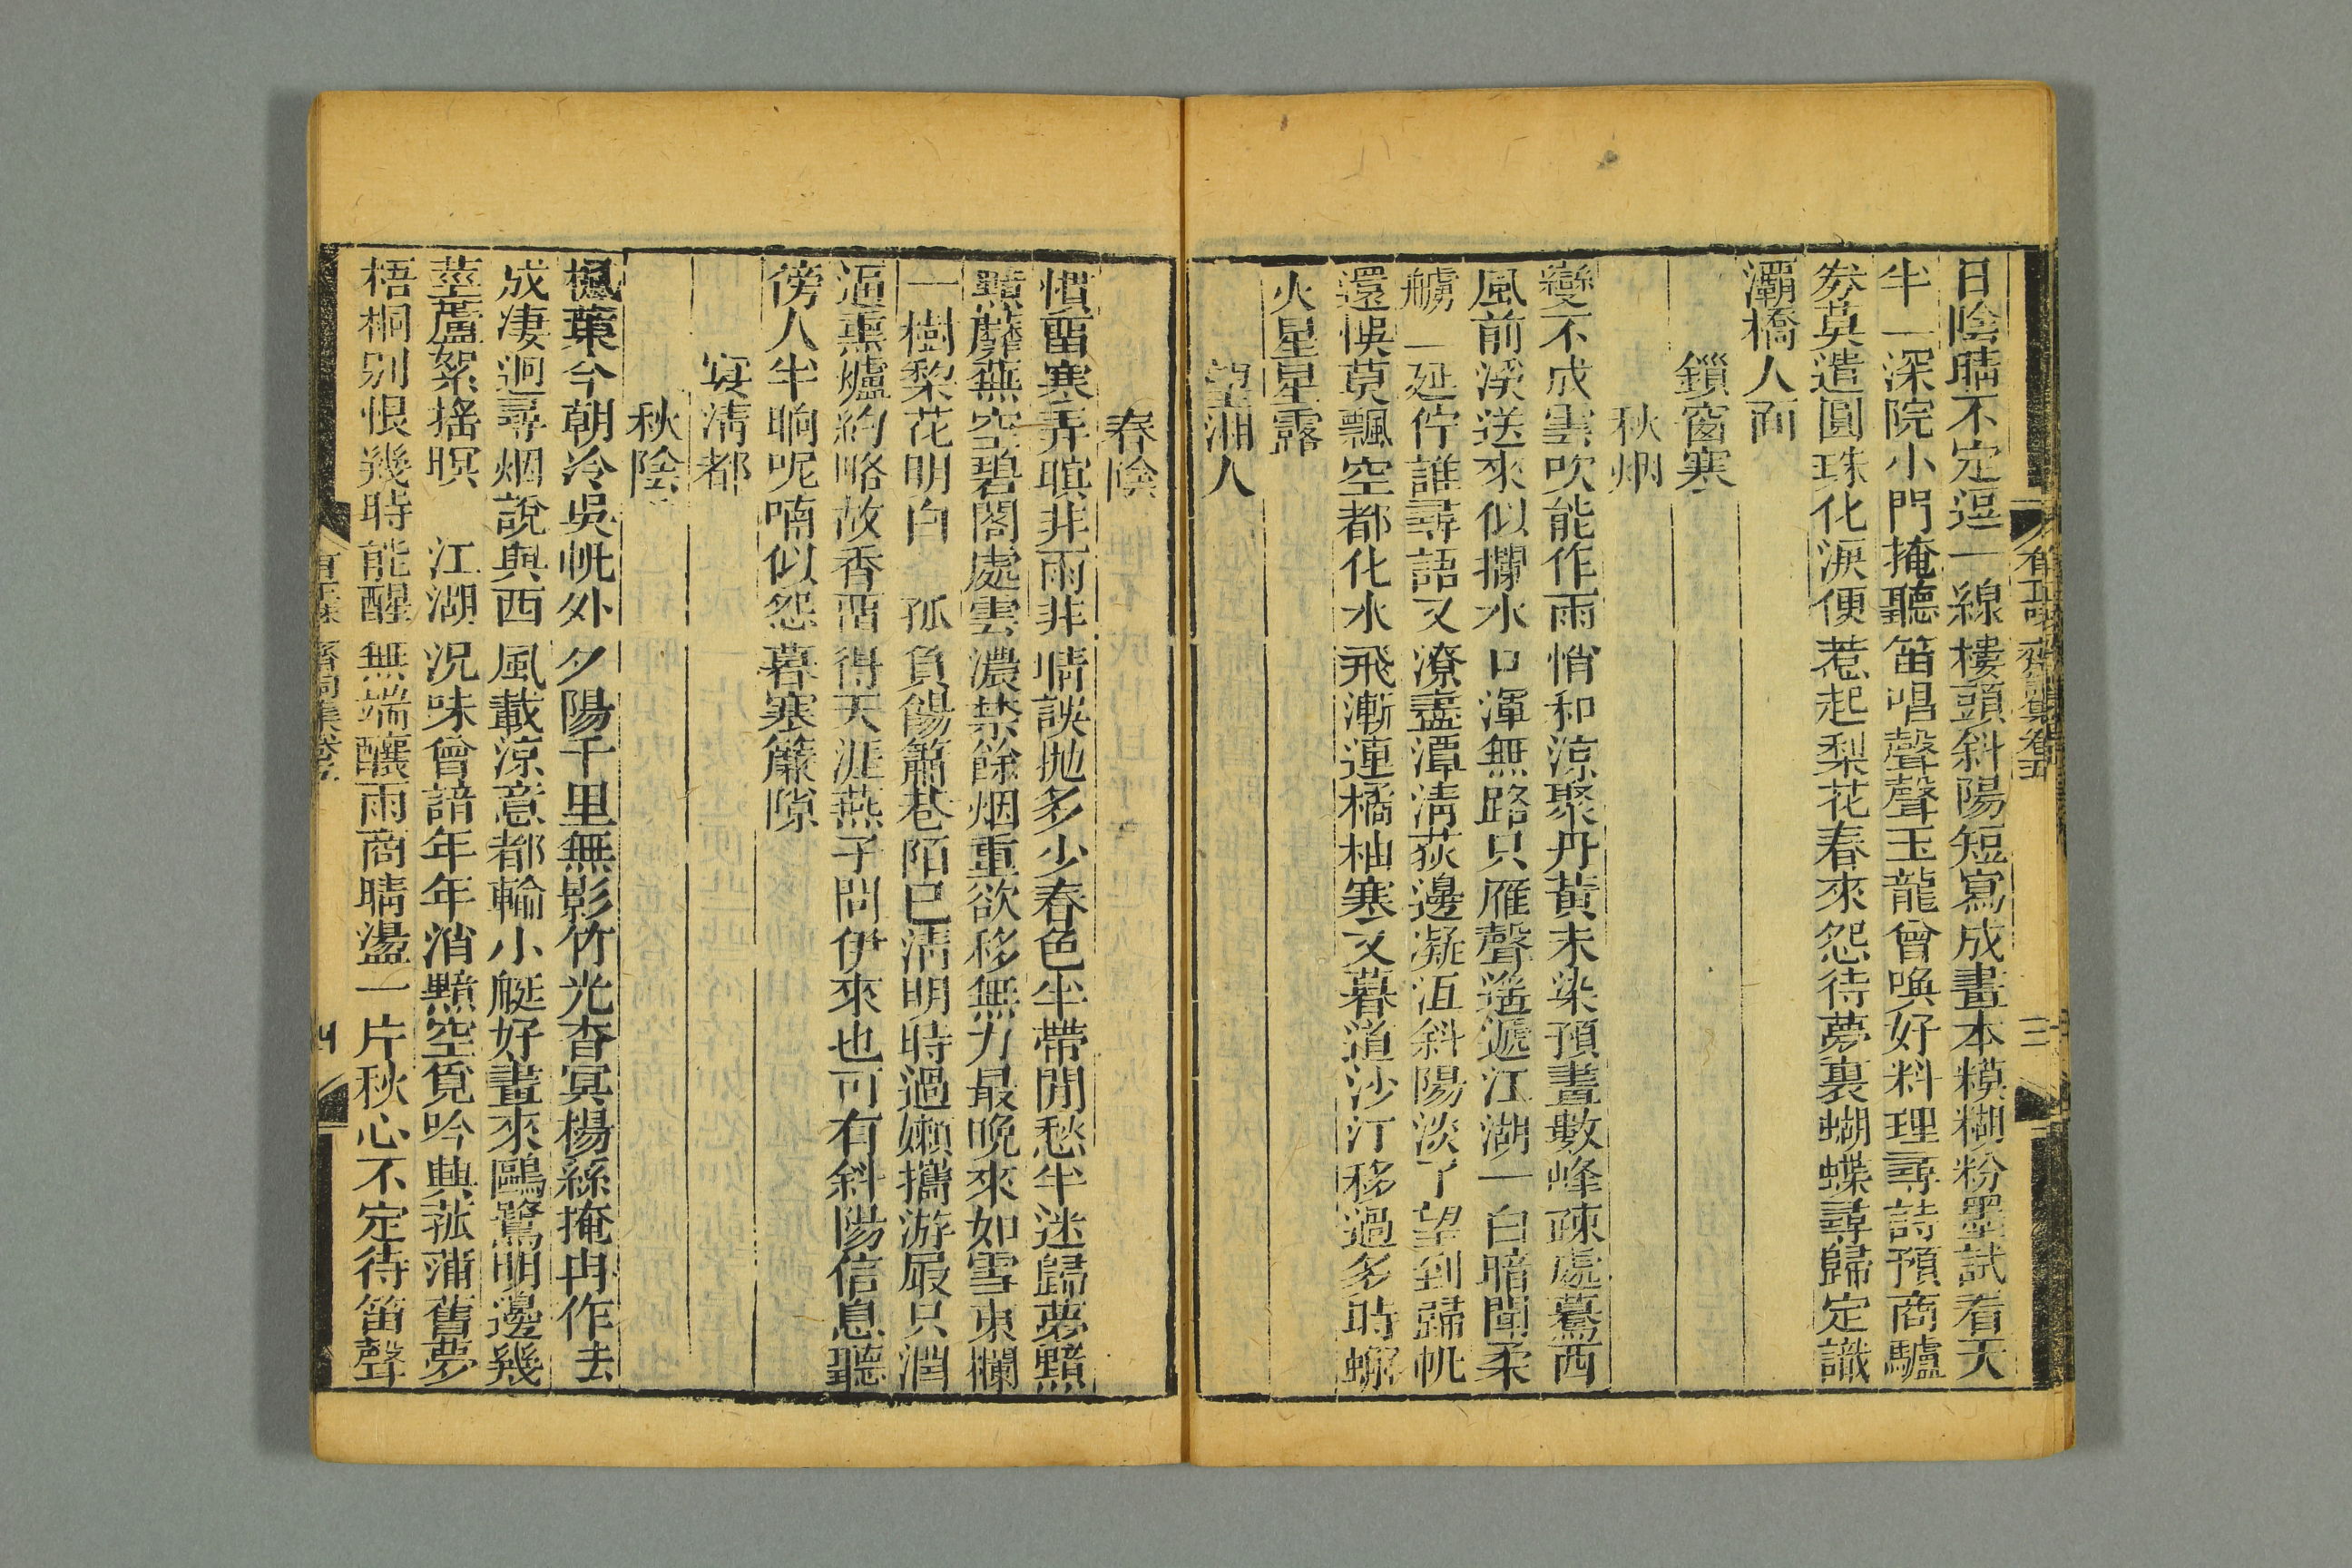 日陰晴不定逗一線樓頭斜陽短寫成畫本模糊粉墨試看天
半 深院小門掩聽笛唱聲聲玉龍曾喚好料理尋詩預商驢
劵莫遣圓珠化淚便惹起梨花春來怨待夢裏蝴蝶尋歸定識
灞橋人面
鎖窗寒
秋烟
變不成雲吹能作雨悄和涼聚丹黃未染預畫數峰疎處驀西
風前溪送來似攔水口渾無路只雁聲遙遞江湖一白暗聞柔
艣 延佇誰尋語又潦盡潭清荻邊凝沍斜陽淡了望到歸帆
還悞莫飄空都化水飛漸連橘柚寒又暮道沙汀移過多時蝦
火星星露
望湘人
春陰
慣畱寒弄暝非雨非情談拋多少春色半帶閒愁半迷歸夢黯
黯蘼蕪空碧閣處雲濃禁餘烟重欲移無力最晚來如雪東欄
一樹梨花明白 孤負餳簫巷陌已清明時過嬾攜游屐只潤
逼熏爐約略故香畱得天涯燕子問伊來也可有斜陽信息聽
傍人半晌呢喃似怨暮寒簾隙
宴清都
秋陰
楓葉今朝冷吳帆外夕陽千里無影竹光杳冥楊絲掩冉作去
成淒迥尋烟說與西風載涼意都輸小艇好畫來鷗鷺明邊幾
莖蘆絮搖暝 江湖況味曾諳年年消黯空覓吟興菰蒲舊夢
梧桐別恨幾時能醒無端釀雨商晴盪一片秋心不定待笛聲